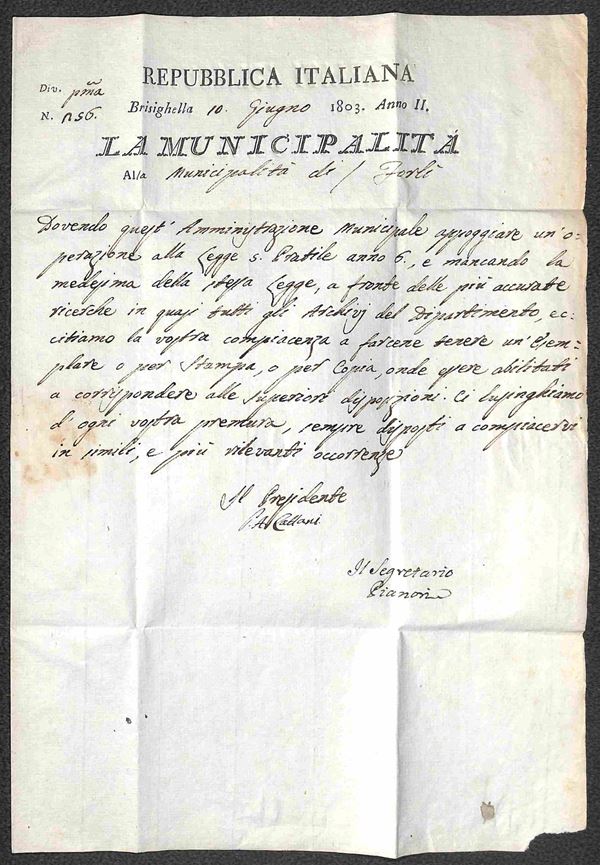 REPUBBLICA ITALIANA
Div. pma
N. 1256.
Brisighella 10. Giugno 1803. Anno II.
LA MUNICIPALITÀ
Alla Municipalità di / Forlì
Dovendo quest' Amministrazione Municipale appoggiare un' o-
perazione alla Legge 5. Pratile anno 6., e mancando la
medesima della stessa Legge, a fronte delle più accurate
ricerche in quasi tutti gli Archivj del Dipartimento, ec:
citiamo la vostra compiacenza a farcene tenere un' Esem-
plare o per Stampa, o per Copia, onde essere abilitati
a corrispondere alle Superiori disposizioni. Ci lusinghiamo
d' ogni vostra premura, sempre disposti a compiacervi
in simili, e più rilevanti occorrenze
Il Presidente
Il Segretario